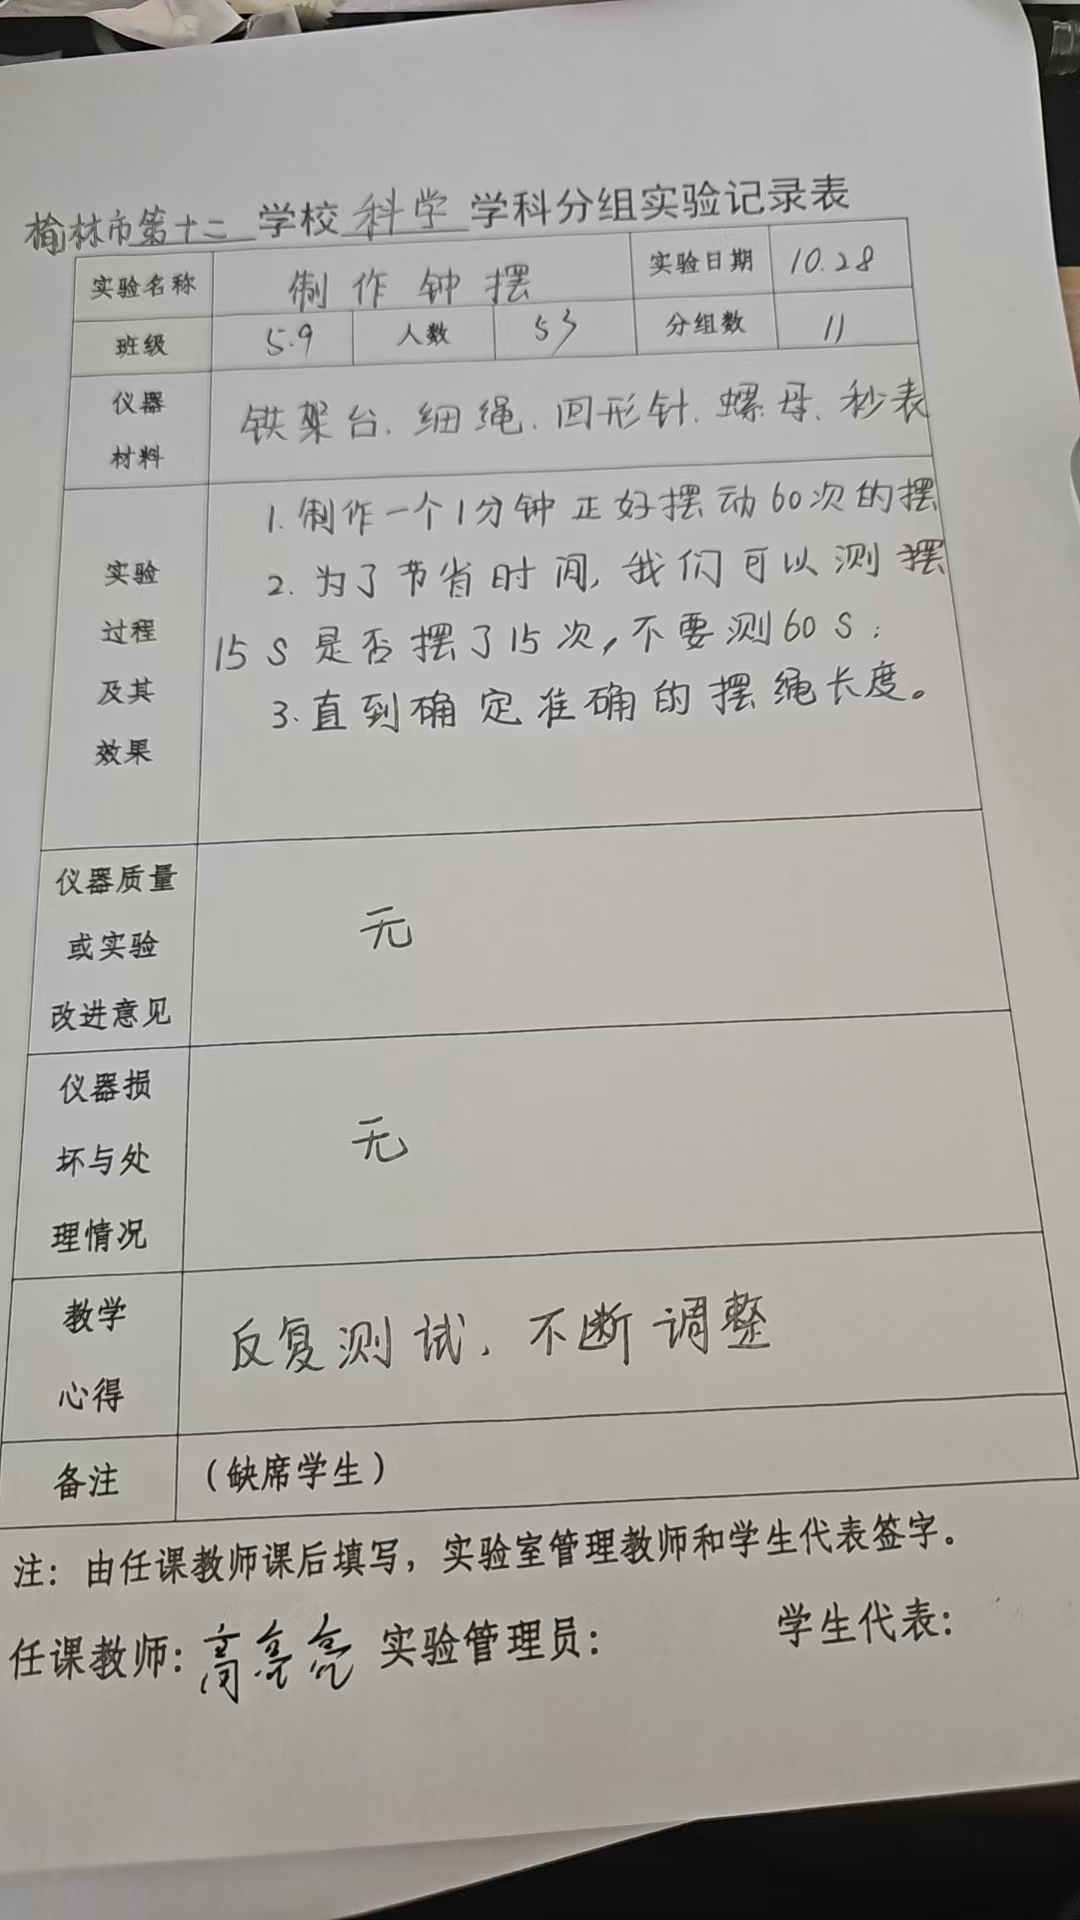 榆林市第十二 学校 科学 学科分组实验记录表
实验名称 制作钟摆 实验日期 10.28
班级 5.9 人数 53 分组数 11
仪器
材料
铁架台、细绳、回形针、螺母、秒表
实验
过程
及其
效果
1. 制作一个1分钟正好摆动60次的摆
2. 为了节省时间, 我们可以测摆
15 S 是否摆了15次, 不要测60 S;
3. 直到确定准确的摆绳长度。
仪器质量
或实验
改进意见
无
仪器损
坏与处
理情况
无
教学
心得
反复测试、不断调整
备注 (缺席学生)
注：由任课教师课后填写，实验室管理教师和学生代表签字。
任课教师: 高亮亮 实验管理员: 学生代表: